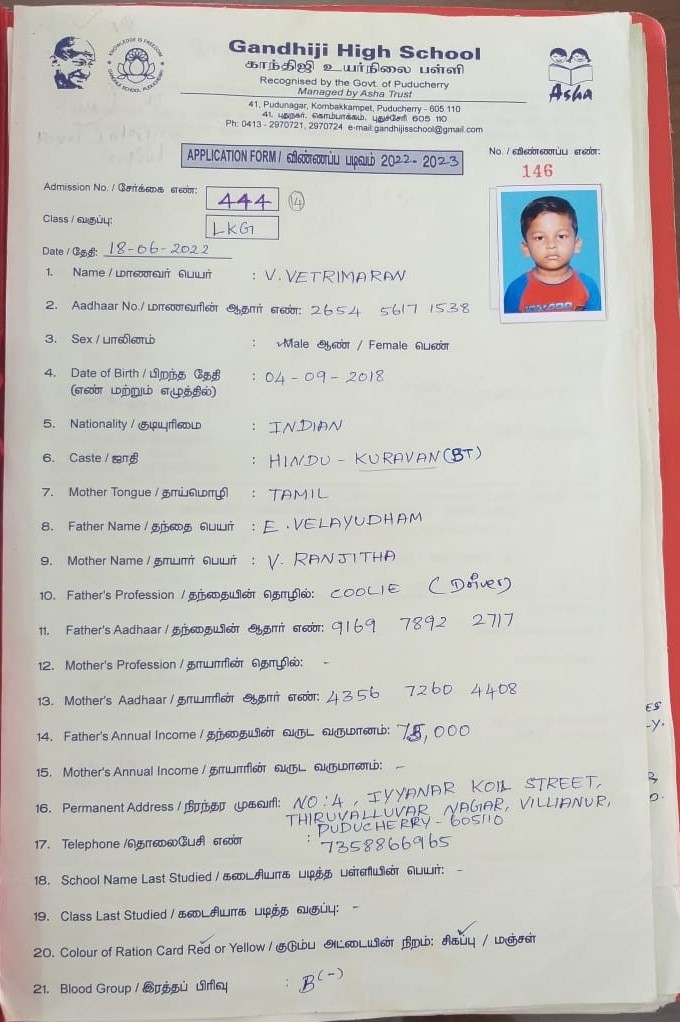 KNOWLEDGE IS FREEDOM
Gandhiji High School
காந்திஜி உயர்நிலை பள்ளி
Recognised by the Govt. of Puducherry
Managed by Asha Trust
Asha
41, Pudunagar, Kombakkampet, Puducherry - 605 110
41, புதுநகர், கொம்பாக்கம், புதுச்சேரி 605 110
Ph: 0413 - 2970721, 2970724 e-mail:gandhijisschool@gmail.com
APPLICATION FORM / விண்ணப்ப படிவம் 2022- 2023
No. / விண்ணப்ப எண்:
146
Admission No. / சேர்க்கை எண்: 444 14
Class / வகுப்பு: LKG
Date / தேதி: 18-06-2022
1. Name / மாணவர் பெயர் : V. VETRIMARAN
2. Aadhaar No./ மாணவரின் ஆதார் எண்: 2654 5617 1538
3. Sex / பாலினம் : Male ஆண் / Female பெண்
4. Date of Birth / பிறந்த தேதி : 04-09-2018
(எண் மற்றும் எழுத்தில்)
5. Nationality / குடியுரிமை : INDIAN
6. Caste / ஜாதி : HINDU - KURAVAN (BT)
7. Mother Tongue / தாய்மொழி : TAMIL
8. Father Name / தந்தை பெயர் : E. VELAYUDHAM
9. Mother Name / தாயார் பெயர் : V. RANJITHA
10. Father's Profession / தந்தையின் தொழில்: COOLIE (Driver)
11. Father's Aadhaar / தந்தையின் ஆதார் எண்: 9169 7892 2717
12. Mother's Profession / தாயாரின் தொழில்: -
13. Mother's Aadhaar / தாயாரின் ஆதார் எண்: 4356 7260 4408
14. Father's Annual Income / தந்தையின் வருட வருமானம்: 75,000
15. Mother's Annual Income / தாயாரின் வருட வருமானம்: -
16. Permanent Address / நிரந்தர முகவரி: NO:4, IYYANAR KOIL STREET,
THIRUVALLUVAR NAGAR, VILLIANUR,
PUDUCHERRY - 605110
17. Telephone /தொலைபேசி எண் : 7358866965
18. School Name Last Studied / கடைசியாக படித்த பள்ளியின் பெயர்: -
19. Class Last Studied / கடைசியாக படித்த வகுப்பு: -
20. Colour of Ration Card Red or Yellow / குடும்ப அட்டையின் நிறம்: சிகப்பு / மஞ்சள்
21. Blood Group / இரத்தப் பிரிவு : B(-)